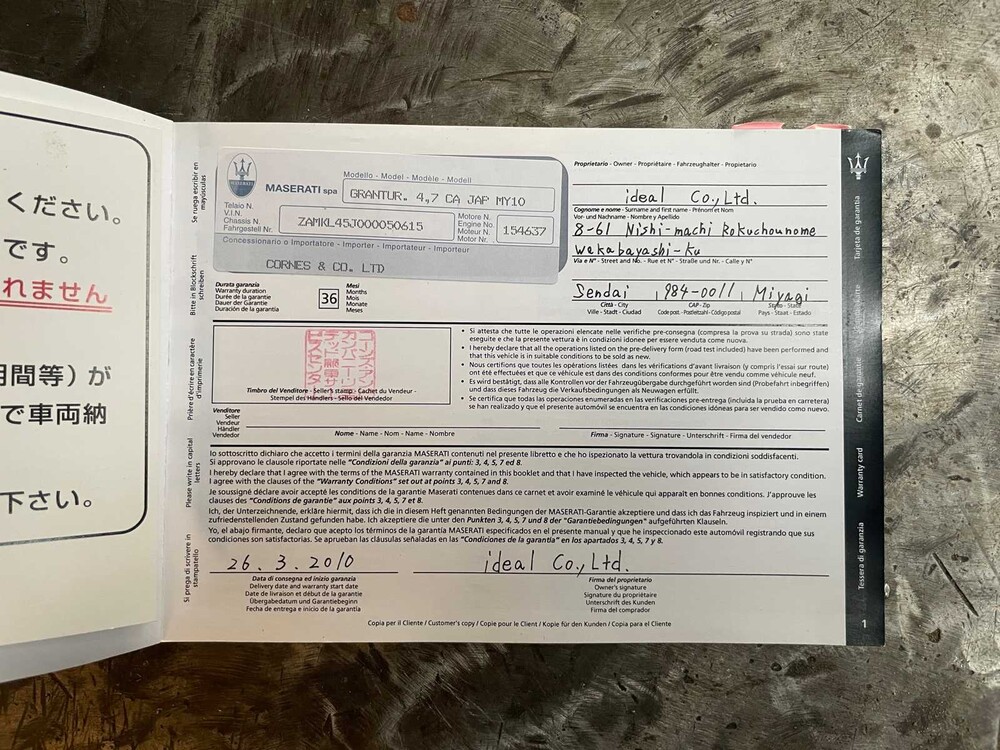 ください。
です。
れません
期間等）が
で車両納
下さい。
Se nuega escribir en mayúsculas
Bitte in Blockschrift schreiben
Prière d'écrire en caractère d'imprimerie
Please write in capital letters
Si prega di scrivere in stampatello
MASERATI spa
Modello - Model - Modèle - Modell
GRANTUR. 4,7 CA JAP MY10
Telaio N.
V.I.N.
Chassis N.
Fahrgestell Nr.
ZAMKL45J000050615
Motore N.
Engine No.
Moteur N.
Motor Nr.
154637
Concessionario o Importatore - Importer - Importateur - Importeur
CORNES & CO. LTD
Proprietario - Owner - Propriétaire - Fahrzeughalter - Propietario
ideal Co.,Ltd.
Cognome e nome - Surname and first name - Prénom et Nom
Vor- und Nachname - Nombre y Apellido
8-61 Nishi-machi Rokuchounome
Wakabayashi-ku
Via e N° - Street and No. - Rue et N° - Straße und Nr. - Calle y N°
Sendai 984-0011 Miyagi
Città - City
Ville - Stadt - Ciudad
CAP - Zip
Code post. - Postleitzahl - Código postal
Stato - State
Pays - Staat - Estado
Durata garanzia
Warranty duration
Durée de la garantie
Dauer der Garantie
Duración de la garantía
36
Mesi
Months
Mois
Monate
Meses
Timbro del Venditore - Seller's stamp - Cachet du Vendeur -
Stempel des Händlers - Sello del Vendedor
• Si attesta che tutte le operazioni elencate nelle verifiche pre-consegna (compresa la prova su strada) sono state
eseguite e che la presente vettura è in condizioni idonee per essere venduta come nuova.
• I hereby declare that all the operations listed on the pre-delivery form (road test included) have been performed and
that this vehicle is in suitable conditions to be sold as new.
• Nous certifions que toutes les opérations listées dans les vérifications d'avant livraison (y compris l'essai sur route)
ont été effectuées et que ce véhicule est dans des conditions conformes pour être vendu comme véhicule neuf.
• Es wird bestätigt, daß alle Kontrollen vor der Fahrzeugübergabe durchgeführt worden sind (Probefahrt inbegriffen)
und dass dieses Fahrzeug die Verkaufsbedingungen als Neuwagen erfüllt.
• Se certifica que todas las operaciones enumeradas en las verificaciones pre-entrega (incluida la prueba en carretera)
se han realizado y que el presente automóvil se encuentra en las condiciones idóneas para ser vendido como nuevo.
Venditore
Seller
Vendeur
Händler
Vendedor
Nome - Name - Nom - Name - Nombre
Firma - Signature - Signature - Unterschrift - Firma del vendedor
Io sottoscritto dichiaro che accetto i termini della garanzia MASERATI contenuti nel presente libretto e che ho ispezionato la vettura trovandola in condizioni soddisfacenti.
Si approvano le clausole riportate nelle "Condizioni della garanzia" ai punti: 3, 4, 5, 7 ed 8.
I hereby declare that I agree with the terms of the MASERATI warranty contained in this booklet and that I have inspected the vehicle, which appears to be in satisfactory condition.
I agree with the clauses of the "Warranty Conditions" set out at points 3, 4, 5, 7 and 8.
Je soussigné déclare avoir accepté les conditions de la garantie Maserati contenues dans ce carnet et avoir examiné le véhicule qui apparaît en bonnes conditions. J'approuve les
clauses des "Conditions de garantie" aux points 3, 4, 5, 7 et 8.
Ich, der Unterzeichnende, erkläre hiermit, dass ich die in diesem Heft genannten Bedingungen der MASERATI-Garantie akzeptiere und dass ich das Fahrzeug inspiziert und in einem
zufriedenstellenden Zustand gefunden habe. Ich akzeptiere die unter den Punkten 3, 4, 5, 7 und 8 der "Garantiebedingungen" aufgeführten Klauseln.
Yo, el abajo firmante, declaro que acepto los términos de la garantía MASERATI especificados en el presente manual y que he inspeccionado este automóvil registrando que sus
condiciones son satisfactorias. Se aprueban las cláusulas señaladas en las "Condiciones de la garantía" en los apartados 3, 4, 5, 7 y 8.
26. 3. 2010
ideal Co.,Ltd.
Data di consegna ed inizio garanzia
Delivery date and warranty start date
Date de livraison et début de la garantie
Übergabedatum und Garantiebeginn
Fecha de entrega e inicio de la garantía
Firma del proprietario
Owner's signature
Signature du propriétaire
Unterschrift des Kunden
Firma del comprador
Copia per il Cliente / Customer's copy / Copie pour le Client / Kopie für den Kunden / Copia para el Cliente
Tarjeta de garantía
Carnet de garantie
Warranty card
Tessera di garanzia
1